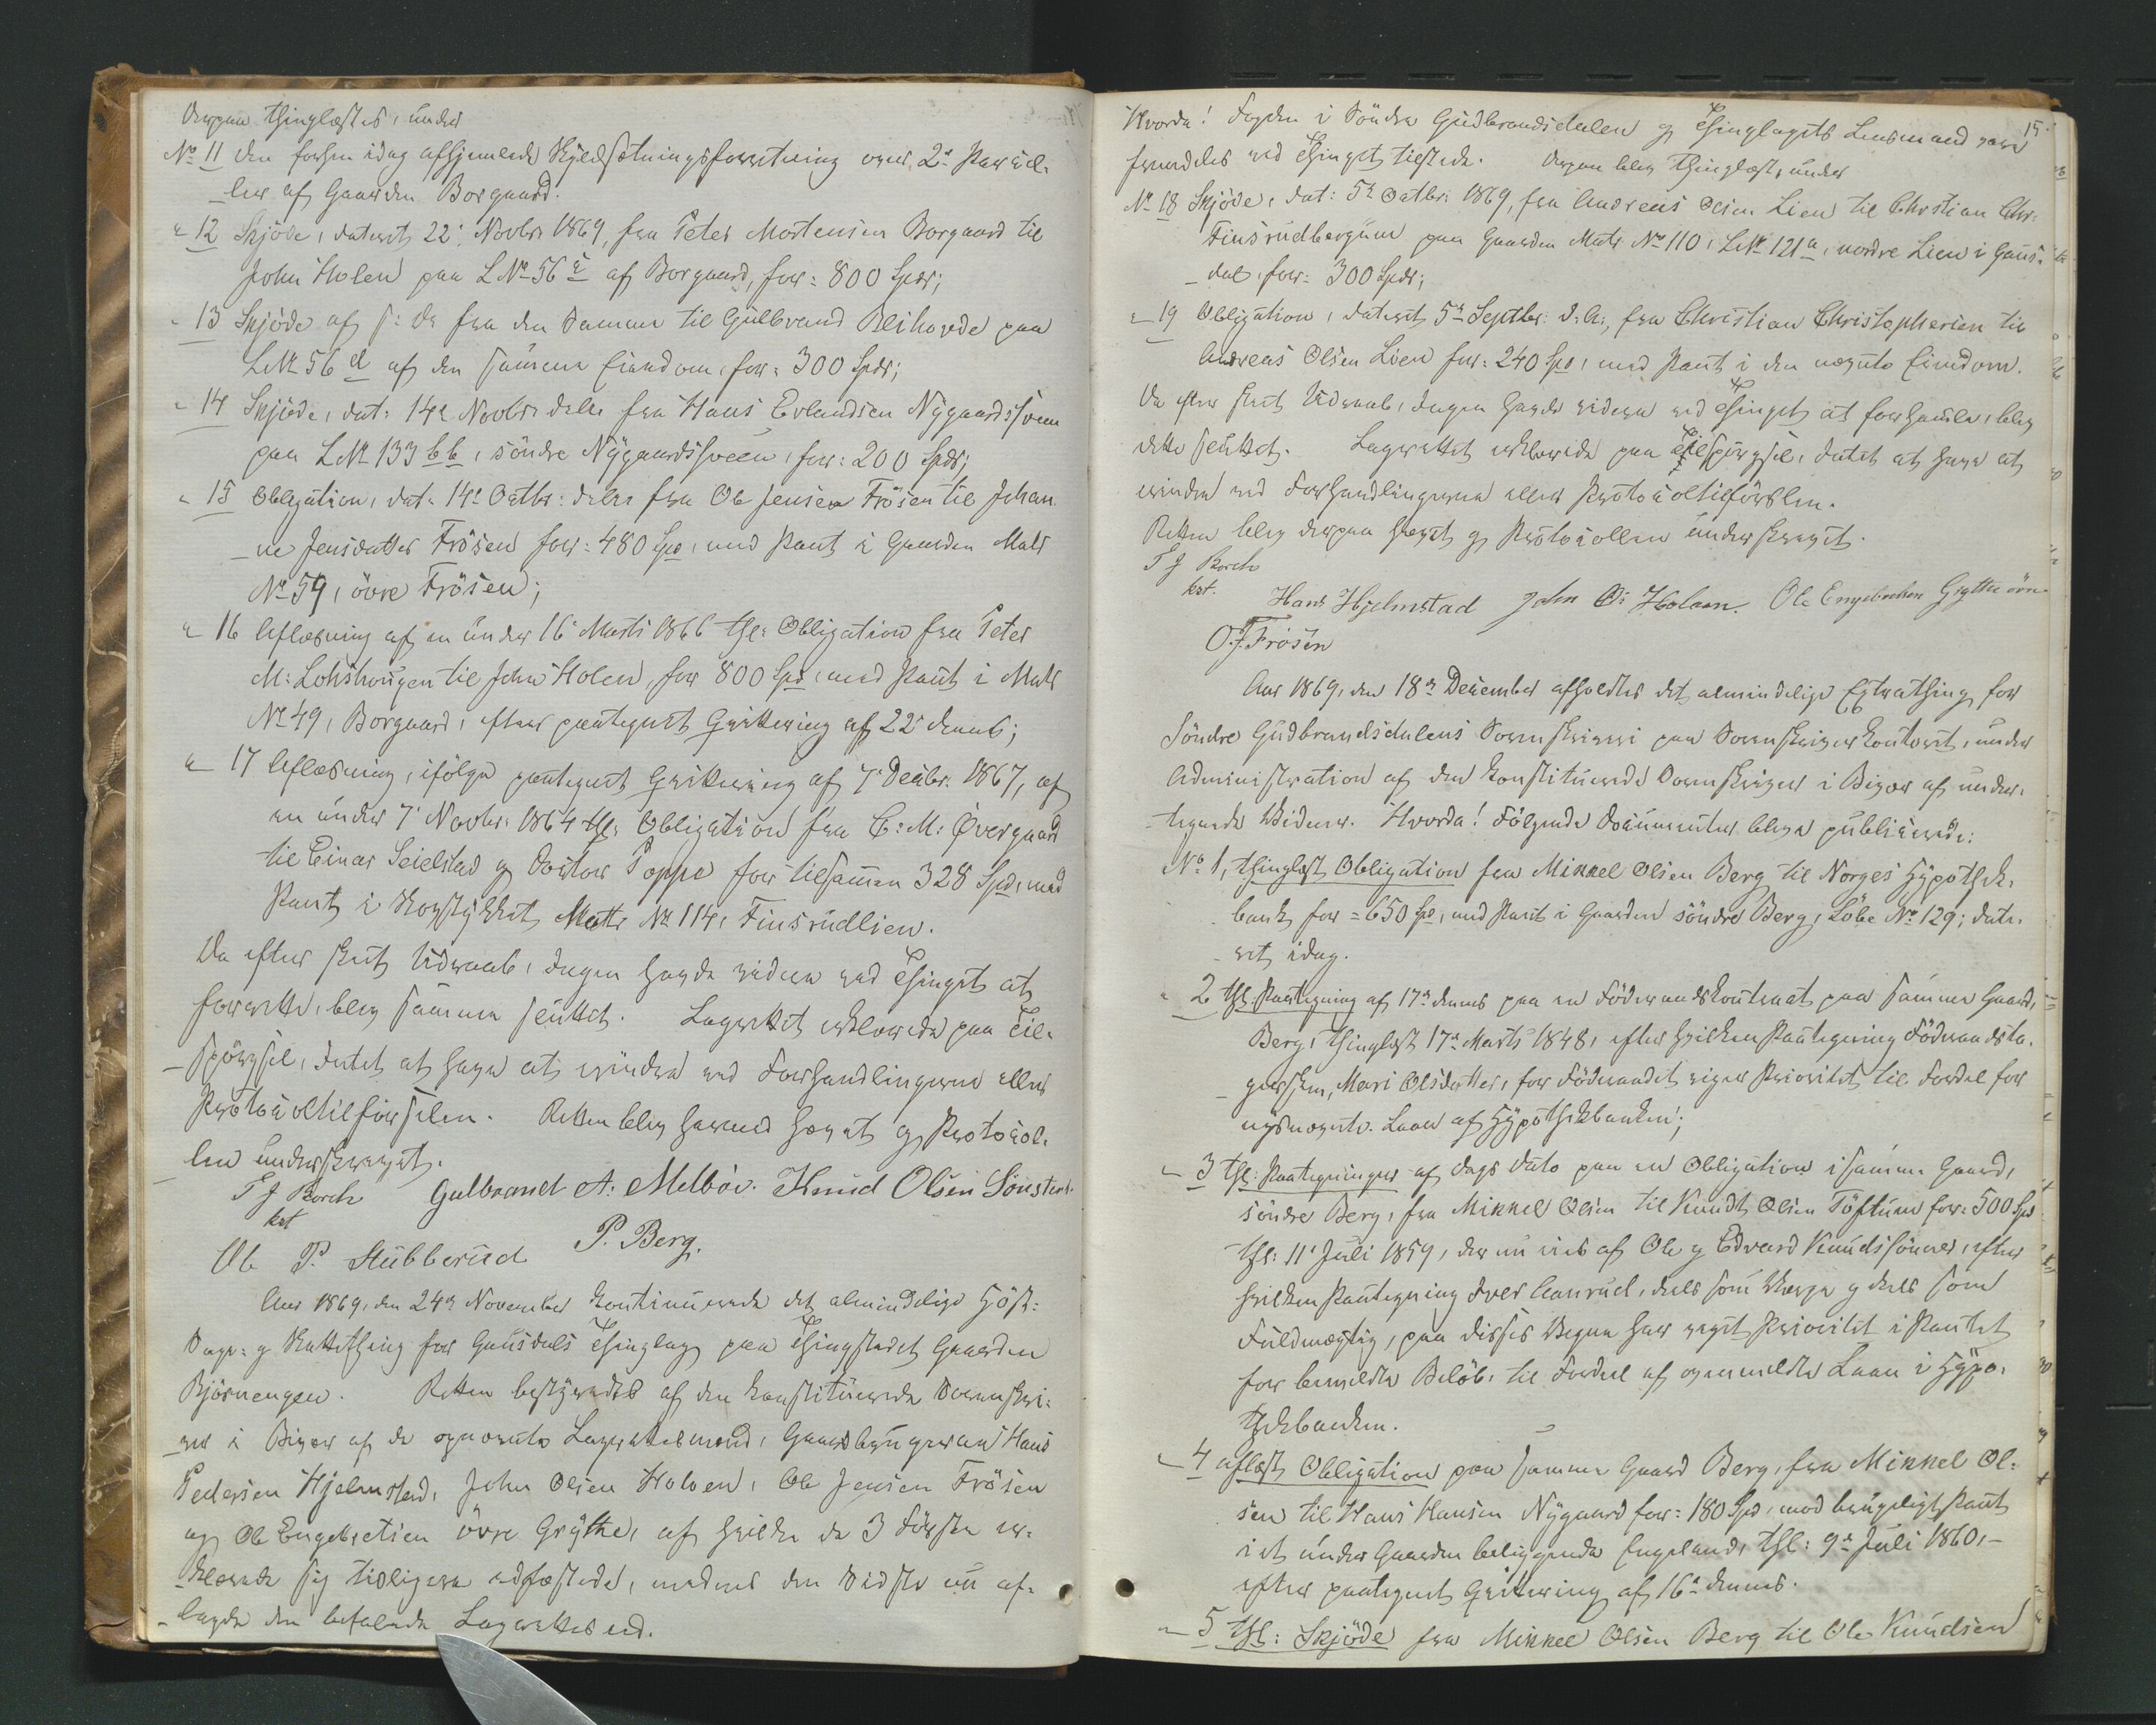 Derpaa thinglæstes, under
No 11 den forhen idag afhjemlede Skyldsætningsforretning over 2de Parcel-
ler af Gaarden Borgaard.
" 12 Skjöde, dateret 22. Novbr 1869, fra Peter Mortensen Borgaard til
John Holen paa L No 56 c af Borgaard, for: 800 Spdr;
" 13 Skjöde af s: D: fra den Samme til Gulbrand Reihovde paa
L.No 56 d af den samme Eiendom, for: 300 Spdr;
" 14 Skjöde, dat: 14de Novbr ds fra Hans Erlandsen Nygaardssveen
paa L.No 133 bb, söndre Nÿgaardssveen, for: 200 Spdr;
" 15 Obligation, dat. 14de Octbr: fra Ole Jensen Frösen til Johan
ne Jensdatter Frösen for: 480 Spd, med Pant i Gaarden Matr
No 59, övre Frösen;
" 16 Aflæsning af en under 16de Marts 1866 thl: Obligation fra Peter
M: Lohshougen til John Holen, for 800 Spd, med Pant i Matr
No 49, Borgaard, efter paategnet Qvittering af 22de dennes;
" 17 Aflæsning, ifölge paategnet Qvittering af 7de Decbr. 1867, af
en under 7de Novbr. 1864 thl: Obligation fra C: M: Övergaard
til Einar Seielstad og Doctor Poppe for tilsammen 328 Spd, med
Pant i Matr No 114, Finsrudlien.
Da efter skeet Udraab, Ingen havde videre ved Thinget at
forrette, blev samme sluttet. Lagrettet erklærede paa Til-
spörgsel, Intet at have at erindre ved Forhandlingerne eller
Protocoltilförselen. Retten blev hævet og Protocol-
len underskrevet.
T J Borch Gulbrand A: Melböe. Knud Olsen Sönsteb.
kst
Ole P. Stubberud P. Berg.
Aar 1869, den 24de November kontinuerede det almindelige Höst-
Sage- og Skattething for Gausdals Thinglag paa Thingstedet Gaarden
Björnengen. Retten bestyredes af den konstituerede Sorenskri-
ver i Bivær af de opnævnte Lagrettesmænd, Gaardbrugerne Hans
Pedersen Hjelmstad, John Olsen Holoen, Ole Jensen Frösen
og Ole Engebretsen övre Grÿthe, af hvilke de 3 Förste er-
klærede sig tidligere edfæstede, medens den Sidste nu af-
lagde den befalede Lagrettesed.
15.
Hvorda! Fogden i Söndre Gudbrandsdalen og Thinglagets Lensmand vare
fremdeles ved Thinget tilstede. Derpaa blev thinglæst, under
No 18 Skjöde, dat: 5te Octbr: 1869, fra Andreas Olsen Lien til Christian Chr.
Finsrudbergum paa Gaarden Matr No 110, L.No 121a, nordre Lien i Gaus-
dal, for: 300 Spdr;
" 19 Obligation, dateret 5te Septbr: d. A:, fra Christian Christophersen til
Andreas Olsen Lien for: 240 Spd, med Pant i den nævnte Eiendom.
Da efter skeet Udraab, Ingen havde videre ved Thinget at forhandle, blev
dette sluttet. Lagrettet erklærede paa Tilspörgsel, Intet at have at
erindre ved Forhandlingerne eller Protocoltilförslen.
Retten blev derpaa hævet og Protocollen underskrevet.
T J Borch
kst. Hans Hjelmstad John O: Holoen. Ole Engebretsen Grythe övre
O. J. Frösen
Aar 1869, den 18de December afholdtes det almindelige Extrathing for
Söndre Gudbrandsdalens Sorenskriveri paa Sorenskriverkontoret, under
Administration af den konstituerede Sorenskriver i Bivær af under-
tegnede Vidner. Hvorda! Fölgende Documenter bleve publicerede:
No 1, thinglæst Obligation fra Mikkel Olsen Berg til Norges Hÿpothek-
bank for = 650 Spd, med Pant i Gaarden söndre Berg, Löbe No 129; date-
ret idag.
" 2 thl: Paategning af 17de dennes paa en Föderaadskontract paa samme Gaard,
Berg, thinglæst 17de Marts 1848, efter hvilken Paategning Föderaadsta-
gersken, Mari Olsdatter, for Föderaadet viger Prioritet til Fordel for
nysnævnte Laan af Hÿpothekbanken;
" 3 thl: Paategninger af Dags Dato paa en Obligation i samme Gaard,
söndre Berg, fra Mikkel Olsen til Knudt Olsen Töftum for: 500 Spd
thl: 11te Juli 1859, der nu eies af Ole og Edvard Knudssönner, efter
hvilken Paategning Iver Aanrud, dels som Værge og dels som
Fuldmægtig, paa disses Vegne har veget Prioritet i Pantet
for bemeldte Belöb, til Fordel af ovenmeldte Laan i Hÿpo-
thekbanken.
" 4 aflæst Obligation paa samme Gaard Berg, fra Mikkel Ol-
sen til Hans Hansen Nÿgaard for: 180 Spd, med brugeligt Pant
i et under Gaarden beliggende Engeland, thl: 9de Juli 1860, -
efter paategnet Qvittering af 16de dennes.
" 5 thl: Skjöde fra Mikkel Olsen Berg til Ole Knudsen